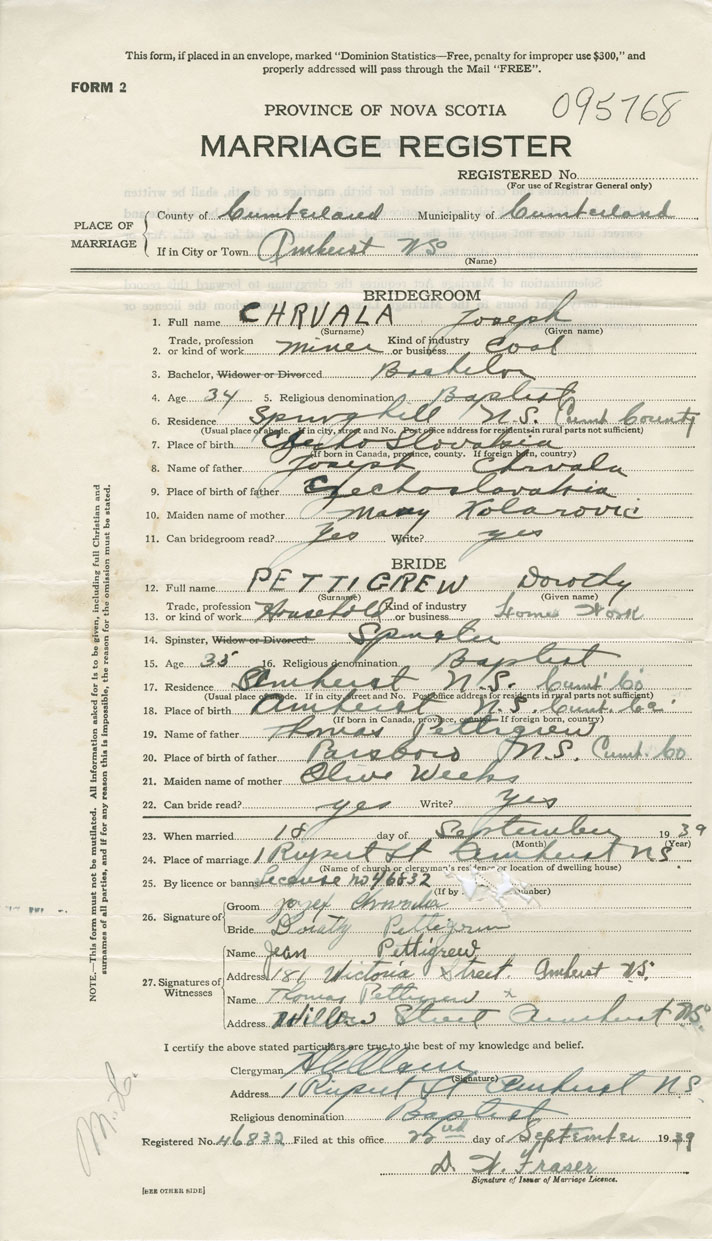 This form, if placed in an envelope, marked "Dominion Statistics—Free, penalty for improper use $300," and
properly addressed will pass through the Mail "FREE".
FORM 2
PROVINCE OF NOVA SCOTIA
095768
MARRIAGE REGISTER
REGISTERED No.
(For use of Registrar General only)
PLACE OF MARRIAGE
County of Cumberland Municipality of Cumberland
If in City or Town Amherst NS
(Name)
BRIDEGROOM
1. Full name CHRVALA Joseph
(Surname) (Given name)
2. Trade, profession or kind of work Miner Kind of industry or business Coal
3. Bachelor, Widower or Divorced Bachelor
4. Age 34 5. Religious denomination Baptist
6. Residence Springhill N.S. Cumb County
(Usual place of abode. If in city, street and No. Post office address for residents in rural parts not sufficient)
7. Place of birth Czecho Slovakia
(If born in Canada, province, county. If foreign born, country)
8. Name of father Joseph Chrvala
9. Place of birth of father Czechoslovakia
10. Maiden name of mother Mary Kolarovic
11. Can bridegroom read? Yes Write? yes
BRIDE
12. Full name PETTIGREW Dorothy
(Surname) (Given name)
13. Trade, profession or kind of work Household Kind of industry or business Home Work
14. Spinster, Widow or Divorced Spinster
15. Age 35 16. Religious denomination Baptist
17. Residence Amherst N.S. Cumb' Co
(Usual place of abode. If in city, street and No. Post office address for residents in rural parts not sufficient)
18. Place of birth Amherst N.S. Cumb. Co.
(If born in Canada, province, county. If foreign born, country)
19. Name of father Thomas Pettigrew
20. Place of birth of father Parsboro N.S. Cumb. Co
21. Maiden name of mother Olive Weeks
22. Can bride read? yes Write? yes
23. When married 18 day of September 1939
(Month) (Year)
24. Place of marriage 1 Rupert St Amherst NS.
(Name of church or clergyman's residence or location of dwelling house)
25. By licence or banns License no 46832
(If by number)
26. Signature of
Groom Jozef
Bride Doroty Pettigrew
27. Signatures of Witnesses
Name Jean Pettigrew
Address 181 Victoria Street. Amherst NS.
Name Thomas Pettigrew x
Address Willow Street Amherst NS.
I certify the above stated particulars are true to the best of my knowledge and belief.
Clergyman
(Signature)
Address 1 Rupert St Amherst N.S.
Religious denomination Baptist
Registered No. 46832 Filed at this office 22nd day of September 1939
D. W. Fraser
Signature of Issuer of Marriage Licence.
[SEE OTHER SIDE]
NOTE.—This form must not be mutilated. All information asked for is to be given, including full Christian and
surnames of all parties, and if for any reason this is impossible, the reason for the omission must be stated.